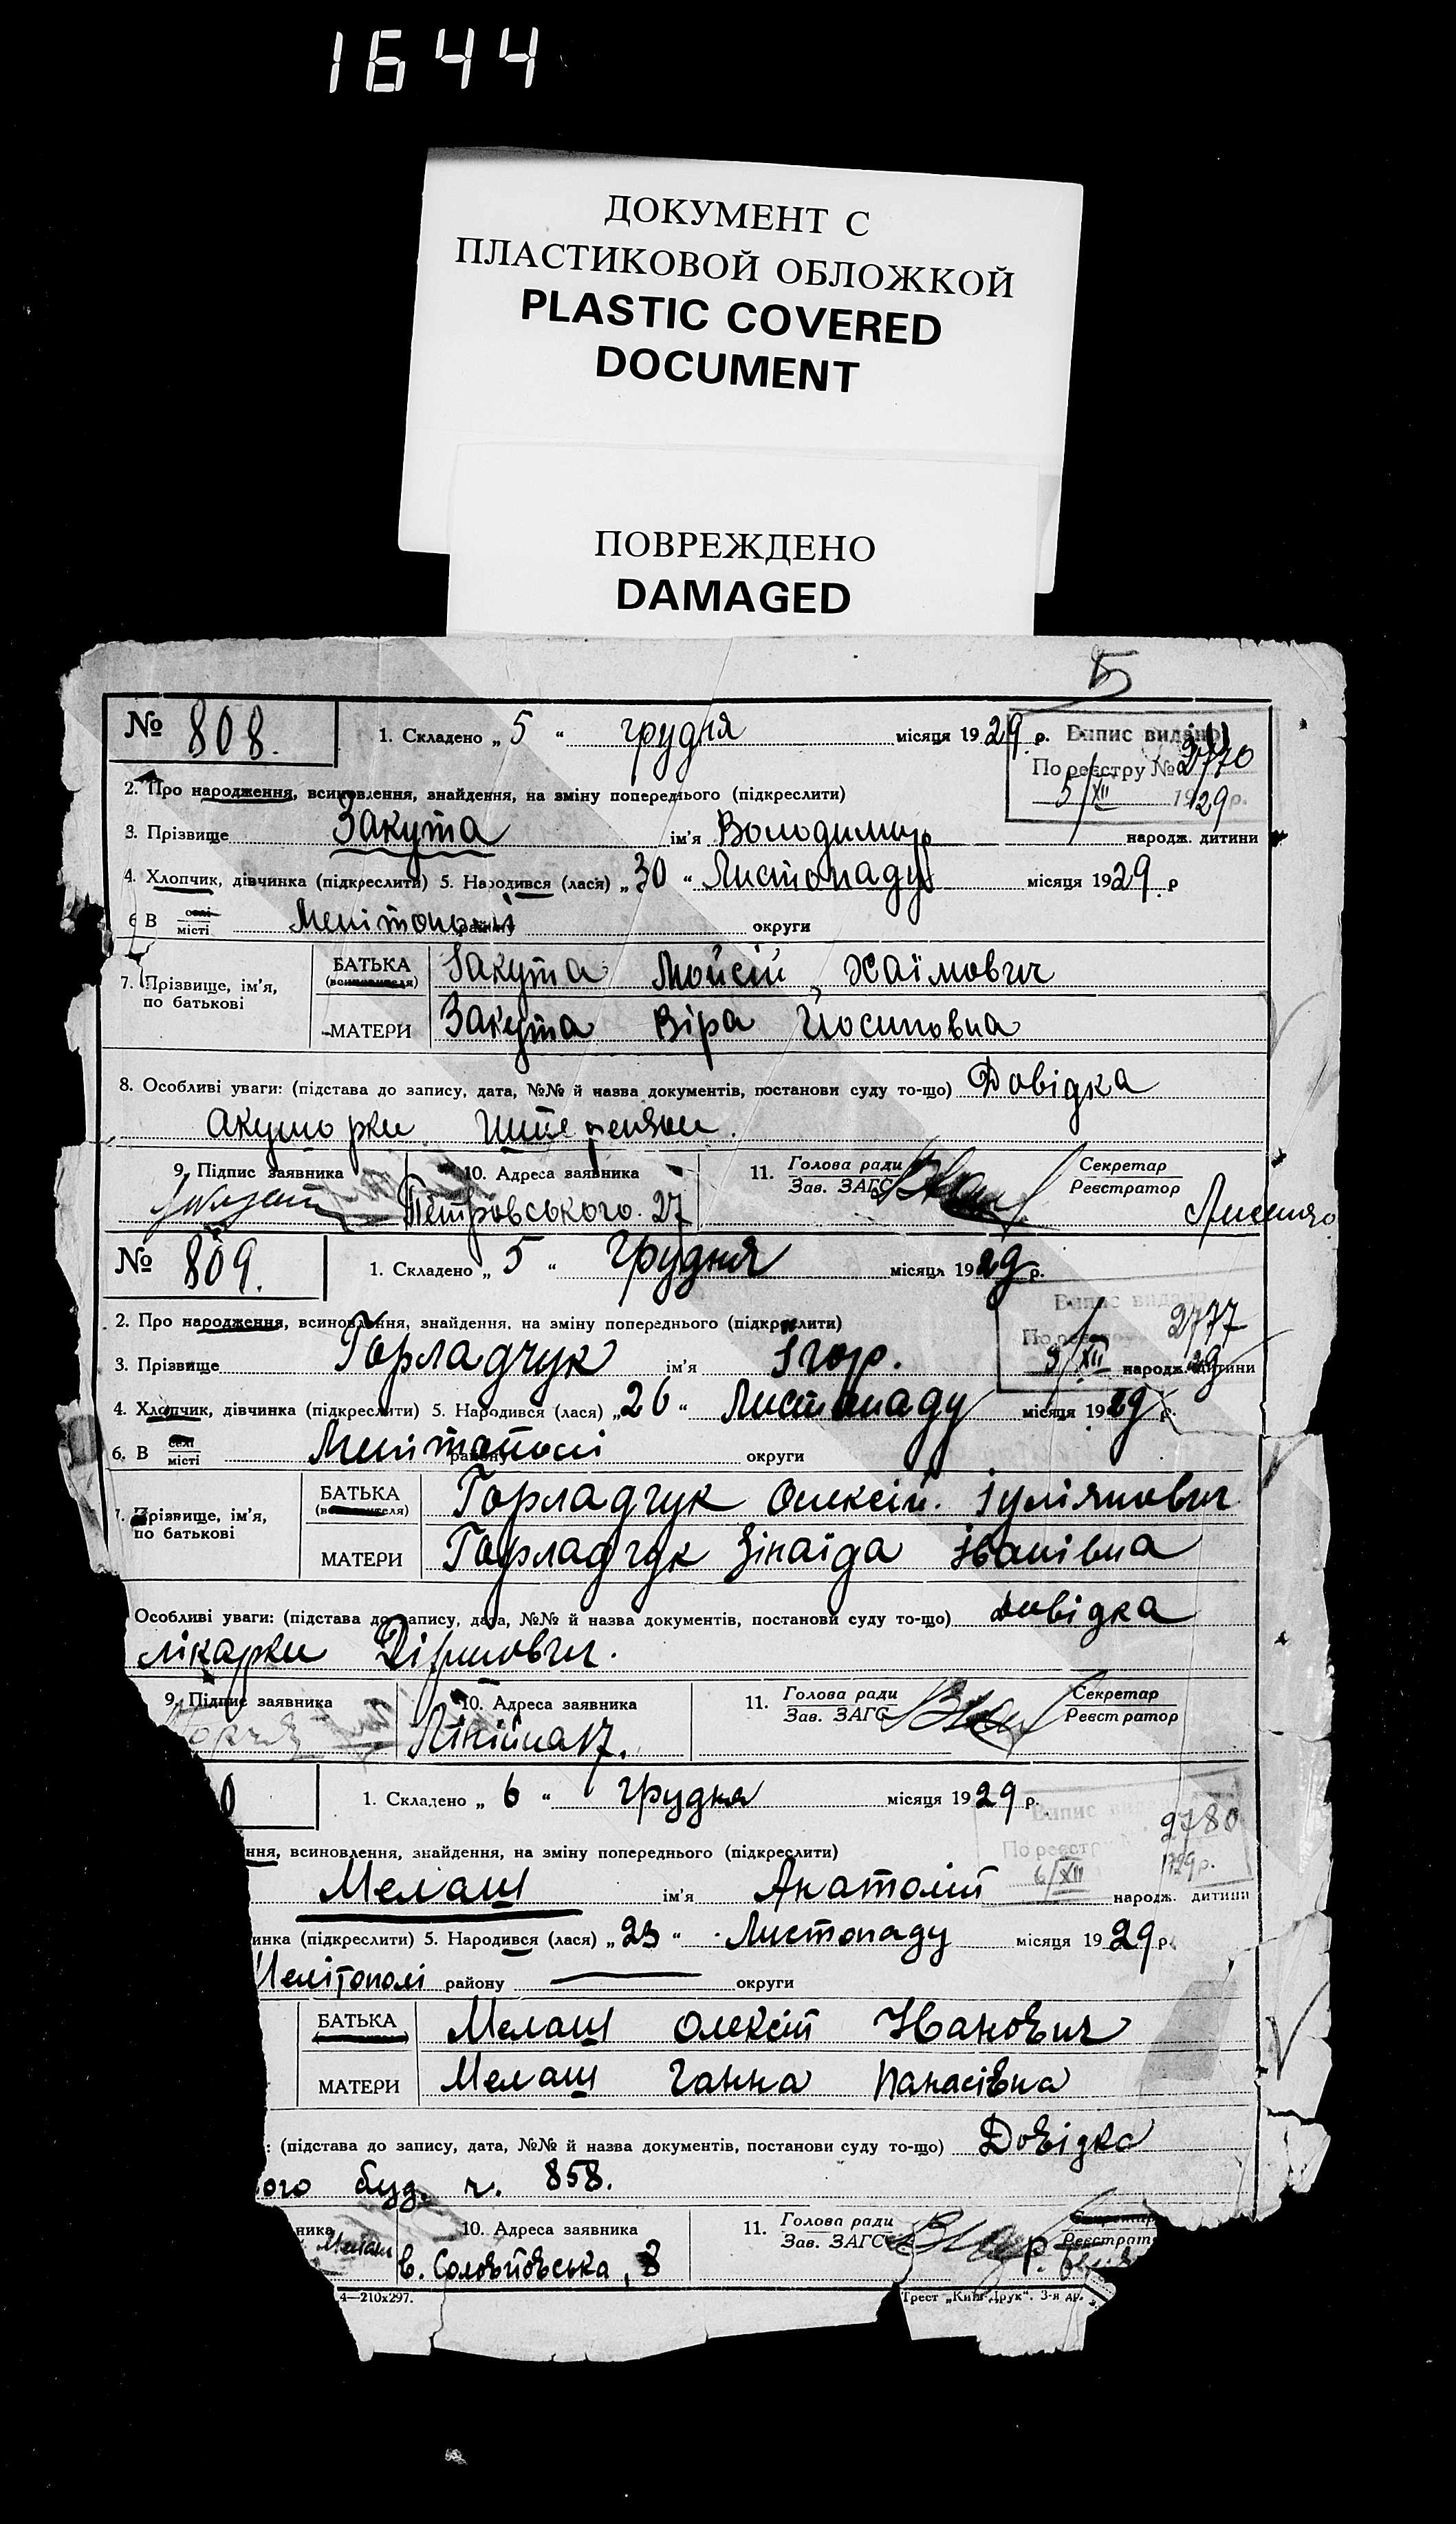 1644
ДОКУМЕНТ С
ПЛАСТИКОВОЙ ОБЛОЖКОЙ
PLASTIC COVERED
DOCUMENT
ПОВРЕЖДЕНО
DAMAGED
5
№ 808. 1. Складено „ 5 “ грудня місяця 1929 р. Випис видано
По реєстру № 2770
5/XII 1929 р.
2. Про народження, всиновлення, знайдення, на зміну попереднього (підкреслити)
3. Прізвище Закута ім'я Володимир народж. дитини
4. Хлопчик, дівчинка (підкреслити) 5. Народився (лася) „ 30 “ Листопаду місяця 1929 р
6 В селі місті Мелітополі району округи
7. Прізвище, ім'я, по батькові БАТЬКА (всиновителя) Закута Мойсій Хаімович
МАТЕРИ Закута Віра Йосиповна
8. Особливі уваги: (підстава до запису, дата, №№ й назва документів, постанови суду то-що) Довідка
акушорки
9. Підпис заявника 10. Адреса заявника 11. Голова ради Зав. ЗАГС Секретар Реєстратор
Петровського 27
№ 809. 1. Складено „ 5 “ грудня місяця 1929 р.
Випис видано
По реєстру 2777
5/XII 29
2. Про народження, всиновлення, знайдення, на зміну попереднього (підкреслити)
3. Прізвище Горладчук ім'я Ігор. народж. дитини
4. Хлопчик, дівчинка (підкреслити) 5. Народився (лася) „ 26 “ Листопаду місяця 1929 р.
6. В селі місті Мелітополі району округи
7. Прізвище, ім'я, по батькові БАТЬКА (всиновителя) Горладчук Олексій. Іуліянович
МАТЕРИ Горладчук Зінаїда Іванівна
Особливі уваги: (підстава до запису, дата, №№ й назва документів, постанови суду то-що) довідка
лікарки
9. Підпис заявника 10. Адреса заявника 11. Голова ради Зав. ЗАГС Секретар Реєстратор
Лінійна 17.
0 1. Складено „ 6 “ грудня місяця 1929 р.
Випис
По реєстр 2780
6/XII 1929 р.
ння, всиновлення, знайдення, на зміну попереднього (підкреслити)
Мелаш ім'я Анатолій народж. дитини
инка (підкреслити) 5. Народився (лася) „ 23 “ Листопаду місяця 1929 р.
Мелітополі району округи
БАТЬКА Мелаш Олексій Іванович
МАТЕРИ Мелаш Ганна Панасівна
: (підстава до запису, дата, №№ й назва документів, постанови суду то-що) Довідка
ого буд. ч. 858.
ника 10. Адреса заявника 11. Голова ради Зав. ЗАГС Секретар Реєстрат
Мелаш в. Соловйовська, 8
4—210x297. Трест „Київ-Друк“. 3-я др.